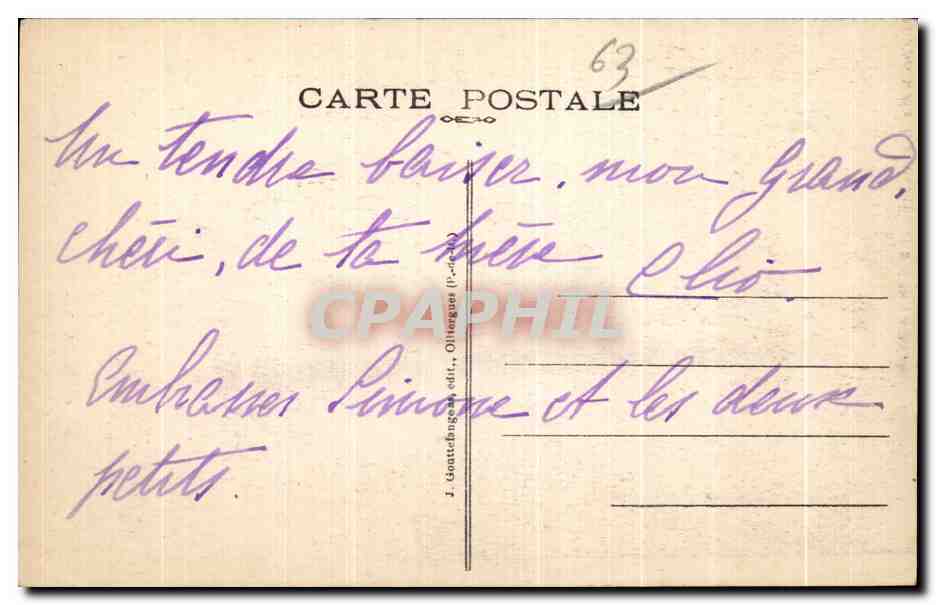 63
CARTE POSTALE
Un tendre baiser, mon grand
chéri, de ta mère Clio.
CPAPHIL
Embrasses Simone et les deux
petits.
J. Gouttefangeas, édit., Olliergues (P.-de-D.)